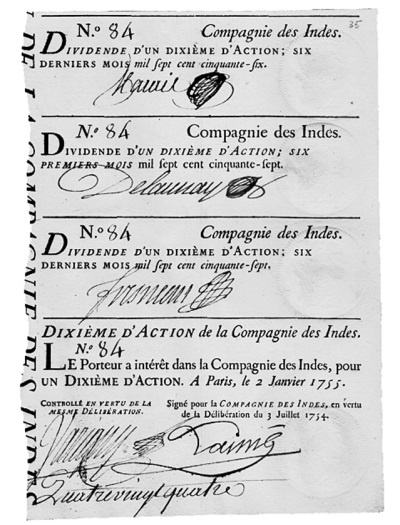 35
N.º 84 Compagnie des Indes.
DIVIDENDE D'UN DIXIÈME D'ACTION; SIX
DERNIERS MOIS mil sept cent cinquante-six.
N.º 84 Compagnie des Indes.
DIVIDENDE D'UN DIXIÈME D'ACTION; SIX
PREMIERS MOIS mil sept cent cinquante-sept.
Delaunay
N.º 84 Compagnie des Indes.
DIVIDENDE D'UN DIXIÈME D'ACTION; SIX
DERNIERS MOIS mil sept cent cinquante-sept.
DIXIÈME D'ACTION de la Compagnie des Indes.
N.º 84
LE Porteur a intérêt dans la Compagnie des Indes, pour
UN DIXIÈME D'ACTION. A Paris, le 2 Janvier 1755.
CONTROLLÉ EN VERTU DE LA MESME DÉLIBÉRATION.
Signé pour la COMPAGNIE DES INDES, en vertu
de la Délibération du 3 Juillet 1754.
Quatre vingt quatre